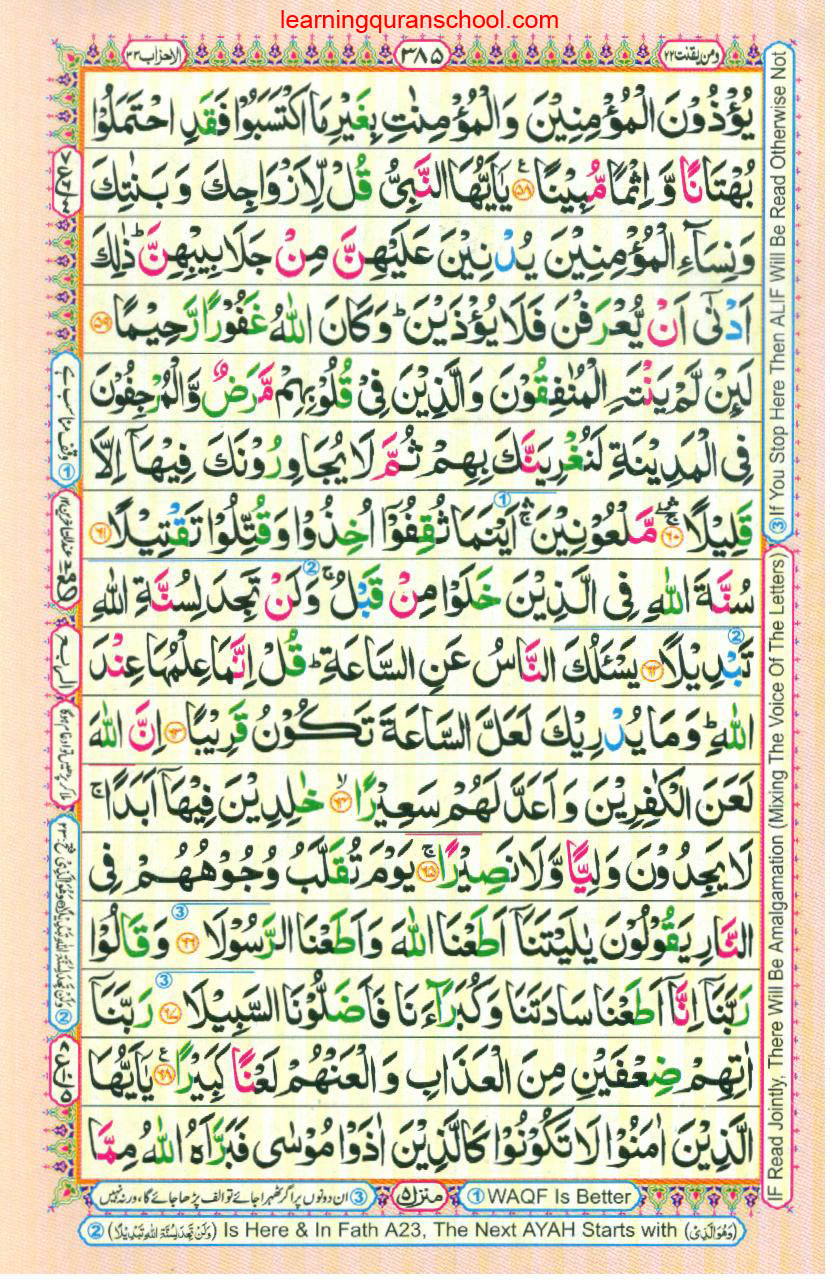 learningquranschool.com
ومن يقنت ٢٢
٣٨٥
الاحزاب ٣٣
يُؤْذُوْنَ الْمُؤْمِنِيْنَ وَالْمُؤْمِنٰتِ بِغَيْرِ مَا اكْتَسَبُوْا فَقَدِ احْتَمَلُوْا
بُهْتَانًا وَّ اِثْمًا مُّبِيْنًا ﴿۵۸﴾ يٰۤاَيُّهَا النَّبِيُّ قُلْ لِّاَزْوَاجِكَ وَ بَنٰتِكَ
وَنِسَآءِ الْمُؤْمِنِيْنَ يُدْنِيْنَ عَلَيْهِنَّ مِنْ جَلَابِيْبِهِنَّ ؕ ذٰلِكَ
اَدْنٰۤى اَنْ يُّعْرَفْنَ فَلَا يُؤْذَيْنَ ؕ وَكَانَ اللّٰهُ غَفُوْرًا رَّحِيْمًا ﴿۵۹﴾
لَىِٕنْ لَّمْ يَنْتَهِ الْمُنٰفِقُوْنَ وَالَّذِيْنَ فِيْ قُلُوْبِهِمْ مَّرَضٌ وَّالْمُرْجِفُوْنَ
فِى الْمَدِيْنَةِ لَنُغْرِيَنَّكَ بِهِمْ ثُمَّ لَا يُجَاوِرُوْنَكَ فِيْهَاۤ اِلَّا
قَلِيْلًا ﴿۶۰﴾ مَّلْعُوْنِيْنَ ۛۚ اَيْنَمَا ثُقِفُوْۤا اُخِذُوْا وَقُتِّلُوْا تَقْتِيْلًا ﴿۶۱﴾
سُنَّةَ اللّٰهِ فِى الَّذِيْنَ خَلَوْا مِنْ قَبْلُ ۚ وَلَنْ تَجِدَ لِسُنَّةِ اللّٰهِ
تَبْدِيْلًا ﴿۶۲﴾ يَسْـَٔلُكَ النَّاسُ عَنِ السَّاعَةِ ؕ قُلْ اِنَّمَا عِلْمُهَا عِنْدَ
اللّٰهِ ؕ وَمَا يُدْرِيْكَ لَعَلَّ السَّاعَةَ تَكُوْنُ قَرِيْبًا ﴿۶۳﴾ اِنَّ اللّٰهَ
لَعَنَ الْكٰفِرِيْنَ وَاَعَدَّ لَهُمْ سَعِيْرًا ﴿۶۴﴾ خٰلِدِيْنَ فِيْهَاۤ اَبَدًا ۚ
لَا يَجِدُوْنَ وَلِيًّا وَّلَا نَصِيْرًا ﴿۶۵﴾ يَوْمَ تُقَلَّبُ وُجُوْهُهُمْ فِى
النَّارِ يَقُوْلُوْنَ يٰلَيْتَنَاۤ اَطَعْنَا اللّٰهَ وَاَطَعْنَا الرَّسُوْلَا ﴿۶۶﴾ وَقَالُوْا
رَبَّنَاۤ اِنَّاۤ اَطَعْنَا سَادَتَنَا وَكُبَرَآءَنَا فَاَضَلُّوْنَا السَّبِيْلَا ﴿۶۷﴾ رَبَّنَاۤ
اٰتِهِمْ ضِعْفَيْنِ مِنَ الْعَذَابِ وَالْعَنْهُمْ لَعْنًا كَبِيْرًا ﴿۶۸﴾ يٰۤاَيُّهَا
الَّذِيْنَ اٰمَنُوْا لَا تَكُوْنُوْا كَالَّذِيْنَ اٰذَوْا مُوْسٰى فَبَرَّاَهُ اللّٰهُ مِمَّا
③ If You Stop Here Then ALIF Will Be Read Otherwise Not
IF Read Jointly, There Will Be Amalgamation (Mixing The Voice Of The Letters)
① وقف مناسب ہے
الربع
① WAQF Is Better
منزل ٥
③ ان دونوں پر اگر ٹھہرا جائے تو الف پڑھا جائے گا، ورنہ نہیں
② (وَلَنْ تَجِدَ لِسُنَّةِ اللّٰهِ تَبْدِيْلًا) Is Here & In Fath A23, The Next AYAH Starts with (وَهُوَ الَّذِيْ)